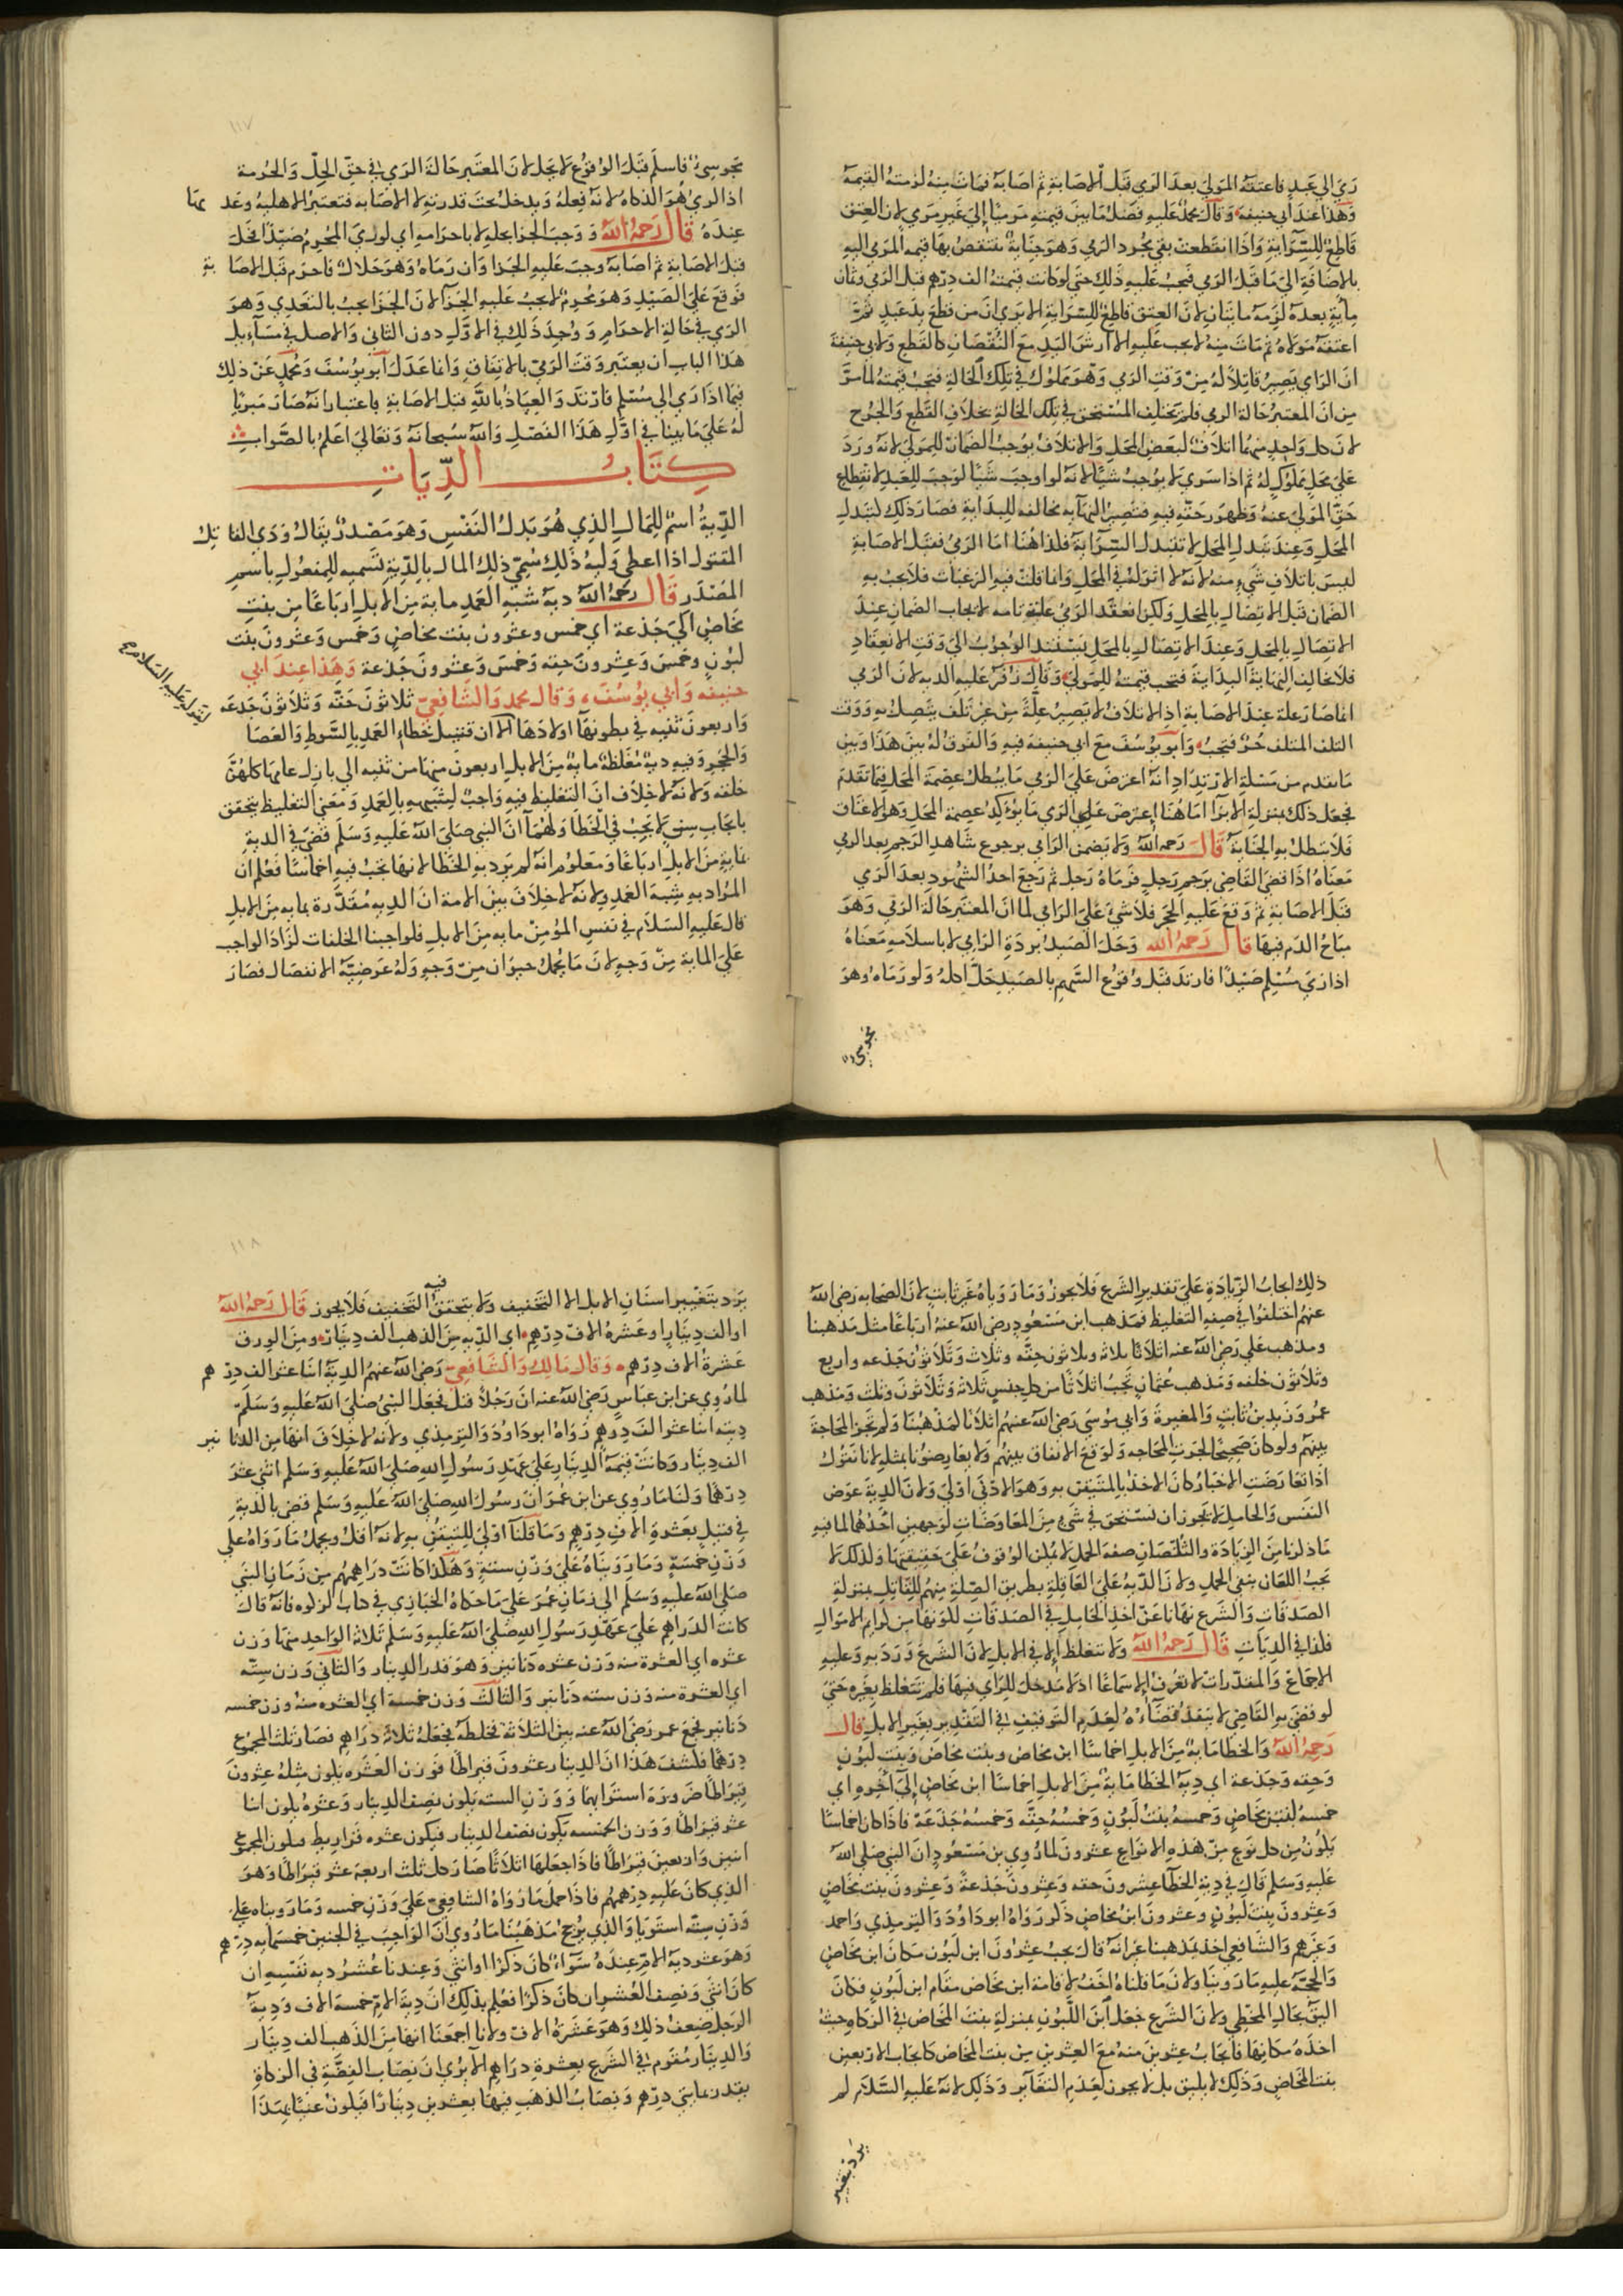 رمي الى عبد فاعتقه المولى بعد الرمي قبل الاصابة ثم اصابه فمات منه لزمته القيمة
وهذا عند ابي حنيفة وقال محمد عليه فضل ما بين قيمته مرميا الى غير مرمي لان العتق
قاطع للسراية واذا انقطعت بقي مجرد الرمي وهو جناية تنتقص بها قيمة المرمي اليه
بالاضافة الى ما قبل الرمي فيجب عليه ذلك حتى لو كانت قيمته الف درهم قبل الرمي وثمان
ماية بعده لزمه مايتان لان العتق قاطع للسراية الا يرى ان من قطع يد عبد ثم
اعتقه مولاه ثم مات منه لا يجب عليه الا ارش اليد مع النقصان كالقطع ولابي حنيفة
ان الرامي يصير قاتلا له من وقت الرمي وهو مملوك في تلك الحالة فتجب قيمته لما مر
من ان المعتبر حالة الرمي فلم يختلف المستحق في تلك الحالة بخلاف القطع والجرح
لان كل واحد منهما اتلاف لبعض المحل والاتلاف يوجب الضمان للمولى لانه ورد
على محل مملوك له ثم اذا سرى لا يوجب شيا لانه لو اوجب شيا لوجب للعبد لانقطاع
حق المولى عنه وظهور حقه فيه فتصير النهاية مخالفة للبداية فصار ذلك كتبدل
المحل وعند تبدل المحل لا تتبدل السراية فكذا هنا اما الرمي فقبل الاصابة
ليس باتلاف شيء منه لانه لا اثر له في المحل وانما قلت فيه الرغبات فلا يجب به
الضمان قبل الاتصال بالمحل ولكن انعقد الرمي علة تامة لايجاب الضمان عند
الاتصال بالمحل وعند الاتصال بالمحل يستند الوجوب الى وقت الانعقاد
فلا تخالف النهاية البداية فتجب قيمته للمولى وقال زفر عليه الدية لان الرمي
انما صار علة عند الاصابة اذ الاتلاف لا يصير علة من غير تلف يتصل به ووقت
التلف المتلف حر فتجب وابو يوسف مع ابي حنيفة فيه والفرق له بين هذا وبين
ما تقدم من مسئلة الارتداد انه اعترض على الرمي ما يبطل عصمة المحل فيما تقدم
فجعل ذلك بمنزلة الابرا اما هنا اعترض على الرمي ما يؤكد عصمة المحل وهو الاعتاق
فلا تبطل به الجناية قال رحمه الله ولا يضمن الرامي برجوع شاهد الرجم بعد الرمي
معناه اذا قضى القاضي برجم رجل فرماه رجل ثم رجع احد الشهود بعد الرمي
قبل الاصابة ثم وقع عليه الحجر فلا شيء على الرامي لما ان المعتبر حالة الرمي وهو
مباح الدم فيها قال رحمه الله وحل الصيد بردة الرامي لا باسلامه معناه
اذا رمى مسلم صيدا فارتد قبل وقوع السهم بالصيد حل اكله ولو رماه وهو
مجوسي
١١٧
مجوسي فاسلم قبل الوقوع لا يحل لان المعتبر حالة الرمي في حق الحل والحرمة
اذ الرمي هو الذكاة لانه فعله ويدخل تحت قدرته لا الاصابة فتعتبر الاهلية وعدمها
عنده قال رحمه الله ووجب الجزا بحله لا باحرامه اي لو رمى المحرم صيدا فحل
قبل الاصابة ثم اصابه وجب عليه الجزا وان رماه وهو حلال فاحرم قبل الاصابة
فوقع على الصيد وهو محرم لا يجب عليه الجزا لان الجزا يجب بالتعدي وهو
الرمي في حالة الاحرام ووجد ذلك في الاول دون الثاني والاصل في مسائل
هذا الباب ان يعتبر وقت الرمي بالاتفاق وانما عدل ابو يوسف ومحمد عن ذلك
فيما اذا رمى الى مسلم فارتد والعياذ بالله قبل الاصابة باعتبار انه صار مبريا
له على ما بينا في اول هذا الفصل والله سبحانه وتعالى اعلم بالصواب
كتاب الديات
الدية اسم للمال الذي هو بدل النفس وهو مصدر يقال ودى القاتل
المقتول اذا اعطى وليه ذلك سمي ذلك المال بالدية تسمية للمفعول باسم
المصدر قال رحمه الله دية شبه العمد ماية من الابل ارباعا من بنت
مخاض الى جذعة اي خمس وعشرون بنت مخاض وخمس وعشرون بنت
لبون وخمس وعشرون حقة وخمس وعشرون جذعة وهذا عند ابي
حنيفة وابي يوسف وقال محمد والشافعي ثلاثون حقة وثلاثون جذعة
لقوله عليه السلام صح
واربعون ثنية في بطونها اولادها الا ان قتيل خطاء العمد بالسوط والعصا
والحجر وفيه دية مغلظة ماية من الابل اربعون منها من ثنية الى بازل عامها كلهن
خلفة ولانه لا خلاف ان التغليظ فيه واجب لشبهه بالعمد ومعنى التغليظ يتحقق
بايجاب سن لا يجب في الخطا ولهما ان النبي صلى الله عليه وسلم قضى في الدية
بماية من الابل ارباعا ومعلوم انه لم يرد به الخطا لانها تجب فيه اخماسا فعلم ان
المراد به شبه العمد ولانه لا خلاف بين الامة ان الدية مقدرة بماية من الابل
قال عليه السلام في نفس المؤمن ماية من الابل فلو اجبنا الخلفات لزاد الواجب
على الماية من وجه لان ما يحمل حيوان من وجه وله عرضية الانفصال فصار
ذلك ايجاب الزيادة على تقدير الشرع فلا يجوز وما روياه غير ثابت لان الصحابة رضي الله
عنهم اختلفوا في صفة التغليظ فمذهب ابن مسعود رضي الله عنه ارباعا مثل مذهبنا
ومذهب علي رضي الله عنه اثلاثا ثلاثة وثلاثون حقة وثلاث وثلاثون جذعة واربع
وثلاثون خلفة ومذهب عثمان تجب اثلاثا من كل جنس ثلاثة وثلاثون وثلث ومذهب
عمر وزيد بن ثابت والمغيرة وابي موسى رضي الله عنهم اثلاثا كمذهبنا ولم تجر المحاجة
بينهم ولو كان صحيحا لجرت المحاجة ولوقع الاتفاق بينهم ولا يعارضونا بمثله لانا نقول
اذا تعارضت الاخبار كان الاخذ بالمتيقن به وهو الادنى اولى ولان الدية عوض
النفس والحامل لا تجوز ان تستحق في شيء من المعاوضات لوجهين احدهما لما فيه
ما ذكرنا من الزيادة والنقصان صفة الحمل لا يمكن الوقوف على حقيقتها ولذلك لا
يجب اللعان بنفي الحمل ولان الدية على العاقلة بطريق الصلة منهم للقاتل بمنزلة
الصدقات والشرع نهانا عن اخذ الحامل في الصدقات لكونها من كرايم الاموال
فكذا في الديات قال رحمه الله ولا تتغلظ الا في الابل لان الشرع ورد به وعليه
الاجماع والمقدرات لا تعرف الا سماعا اذ لا مدخل للراي فيها فلم تتغلظ بغيره حتى
لو قضى به القاضي لا ينفذ قضاؤه لعدم التوقيف في التقدير بغير الابل قال
رحمه الله والخطا ماية من الابل اخماسا ابن مخاض وبنت مخاض وبنت لبون
وحقة وجذعة اي دية الخطا ماية من الابل اخماسا ابن مخاض الى اخره اي
خمسه ابن مخاض وخمسه بنت لبون وخمسه حقة وخمسه جذعة فاذا كان اخماسا
يكون من كل نوع من هذه الانواع عشرون لما روي بن مسعود ان النبي صلى الله
عليه وسلم قال في دية الخطا عشرون حقة وعشرون جذعة وعشرون بنت مخاض
وعشرون بنت لبون وعشرون ابن مخاض ذكر رواه ابو داود والترمذي واحمد
وغيرهم والشافعي اخذ بمذهبنا غير انه قال يجب عشرون ابن لبون مكان ابن مخاض
والحجة عليه ما روينا ولان ما قلناه اخف لاقامة ابن مخاض مقام ابن لبون فكان
اليق بحال المخطي ولان الشرع جعل ابن اللبون بمنزلة بنت المخاض في الزكاة حيث
اخذه مكانها فايجاب عشرين منه مع العشرين من بنت المخاض كايجاب الاربعين
بنت المخاض وذلك لا يليق بل لا يجوز لعدم التغاير وذلك لانه عليه السلام لم
يرد بتغيير
١١٨
يرد بتغيير اسنان الابل الا التخفيف ولا يتحقق فيه التخفيف فلا يجوز قال رحمه الله
او الف دينار او عشرة الاف درهم اي الدية من الذهب الف دينار ومن الورق
عشرة الاف درهم وقال مالك والشافعي رضي الله عنهم الدية اثنا عشر الف درهم
لما روي عن ابن عباس رضي الله عنه ان رجلا قتل فجعل النبي صلى الله عليه وسلم
ديته اثنا عشر الف درهم رواه ابو داود والترمذي ولانه لا خلاف انها من الدنانير
الف دينار وكانت قيمة الدينار على عهد رسول الله صلى الله عليه وسلم اثني عشر
درهما ولنا ما روي عن ابن عمر ان رسول الله صلى الله عليه وسلم قضى بالدية
في قتيل بعشرة الاف درهم وما قلنا اولى للتيقن به لانه اقل ويحمل ما رواه على
وزن خمسة وما رويناه على وزن ستة وهكذا كانت دراهمهم من زمان النبي
صلى الله عليه وسلم الى زمان عمر على ما حكاه الخبازي في كتاب الزكوة فانه قال
كانت الدراهم على عهد رسول الله صلى الله عليه وسلم ثلاثة الواحد منها وزن
عشرة اي العشرة منه وزن عشرة دنانير وهو قدر الدينار والثاني وزن ستة
اي العشرة منه وزن ستة دنانير والثالث وزن خمسة اي العشرة منه وزن خمسة
دنانير فجمع عمر رضي الله عنه بين الثلاثة فخلطه فجعله ثلاثة دراهم فصار ثلث المجموع
درهما فكشف هذا ان الدينار عشرون قيراطا فوزن العشرة يكون مثله عشرون
قيراطا ضرورة استوايهما ووزن الستة يكون نصف الدينار وعشره يكون اثنا
عشر قيراطا ووزن الخمسة يكون نصف الدينار فيكون عشرة قراريط فيكون المجموع
اثنين واربعين قيراطا فاذا جعلها اثلاثا صار كل ثلث اربعة عشر قيراطا وهو
الذي كان عليه درهمهم فاذا حمل ما رواه الشافعي على وزن خمسة وما رويناه على
وزن ستة استويا والذي يرجح مذهبنا ما روي ان الواجب في الجنين خمسماية درهم
وهو عشر دية الام عنده سواء كان ذكرا او انثى وعندنا عشر دية نفسه ان
كان انثى ونصف العشر ان كان ذكرا فعلم بذلك ان دية الام خمسة الاف ودية
الرجل ضعف ذلك وهو عشرة الاف ولانا اجمعنا انها من الذهب الف دينار
والدينار مقوم في الشرع بعشرة دراهم الا يرى ان نصاب الفضة في الزكاة
يقدر بمايتي درهم ونصاب الذهب فيها بعشرين دينارا فيكون غنيا بهذا